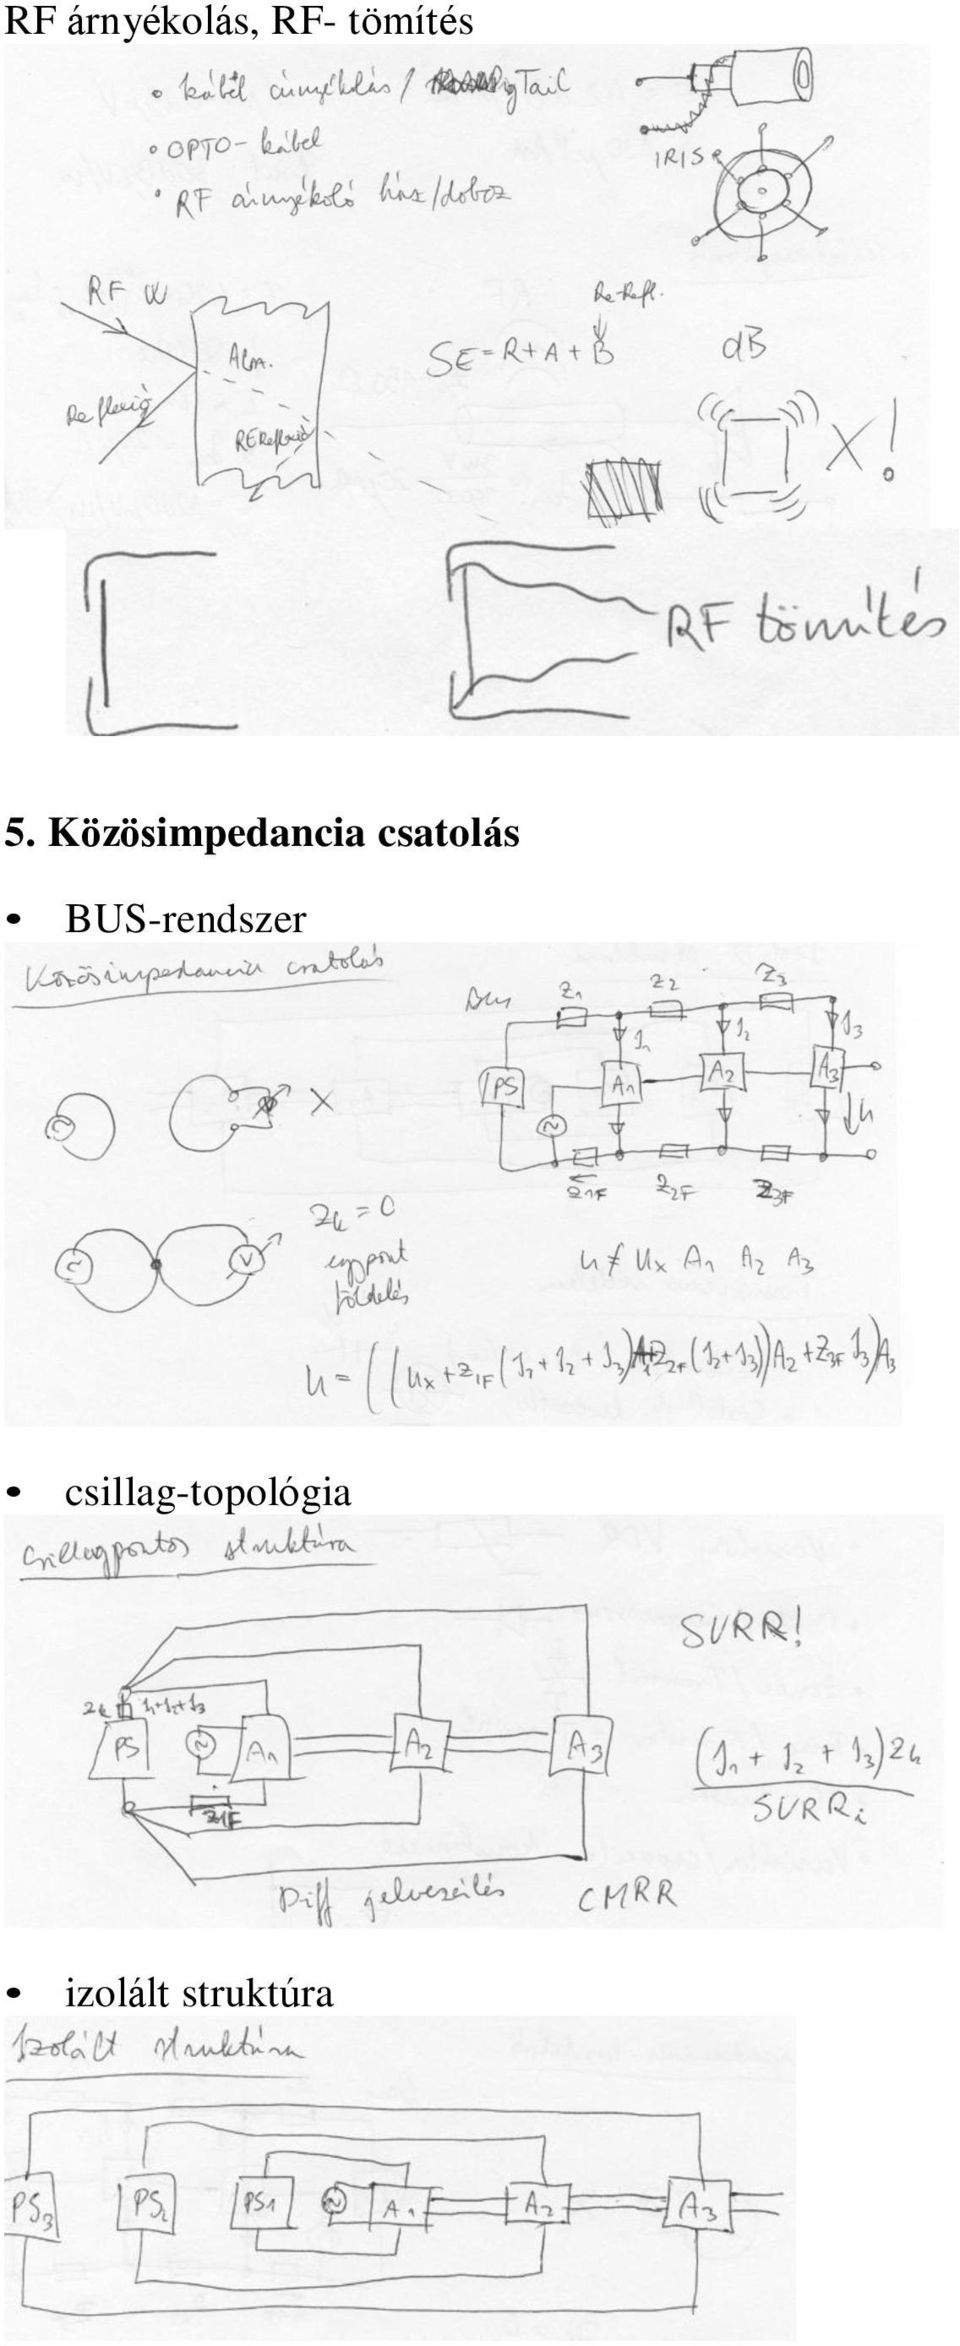 RF árnyékolás, RF- tömítés
• kábel árnyékolás / PigTail
• OPTO-kábel
• RF árnyékoló ház/doboz
IRIS
RF W
Reflexió
REReflexió
Re-Refl.
SE = R + A + B dB
X!
RF tömítés
5. Közösimpedancia csatolás
• BUS-rendszer
Közösimpedancia csatolás
Bus Z1 Z2 Z3
I1 I2 I3
PS A1 A2 A3
u
Z1F Z2F Z3F
X
V
Zk = 0
egypont
földelés
u ≠ ux A1 A2 A3
u = ((ux + Z1F (I1 + I2 + I3)A1 + Z2F (I2 + I3))A2 + Z3F I3)A3
• csillag-topológia
Csillagpontos struktúra
SVRR!
Zk I1+I2+I3
PS A1 A2 A3
Z1F
(I1 + I2 + I3) Zk
SVRRi
Diff jelvezetés CMRR
• izolált struktúra
Izolált struktúra
PS3 PS2 PS1 A1 A2 A3